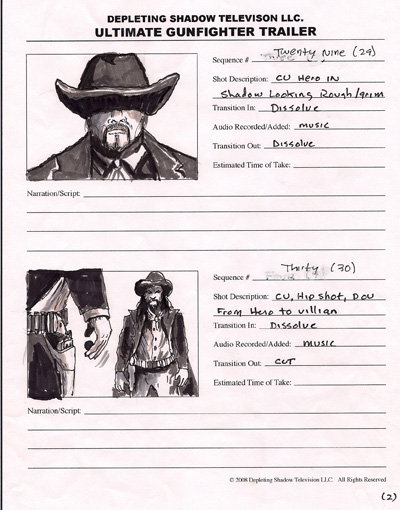 DEPLETING SHADOW TELEVISON LLC.
ULTIMATE GUNFIGHTER TRAILER
Sequence # Twenty Nine (29)
Shot Description: CU Hero IN
Shadow Looking Rough/grim
Transition In: Dissolve
Audio Recorded/Added: music
Transition Out: Dissolve
Estimated Time of Take:
Narration/Script:
Sequence # Thirty (30)
Shot Description: CU, Hip shot, DOU
From Hero to villian
Transition In: Dissolve
Audio Recorded/Added: music
Transition Out: CUT
Estimated Time of Take:
Narration/Script:
© 2008 Depleting Shadow Television LLC. All Rights Reserved
(2)